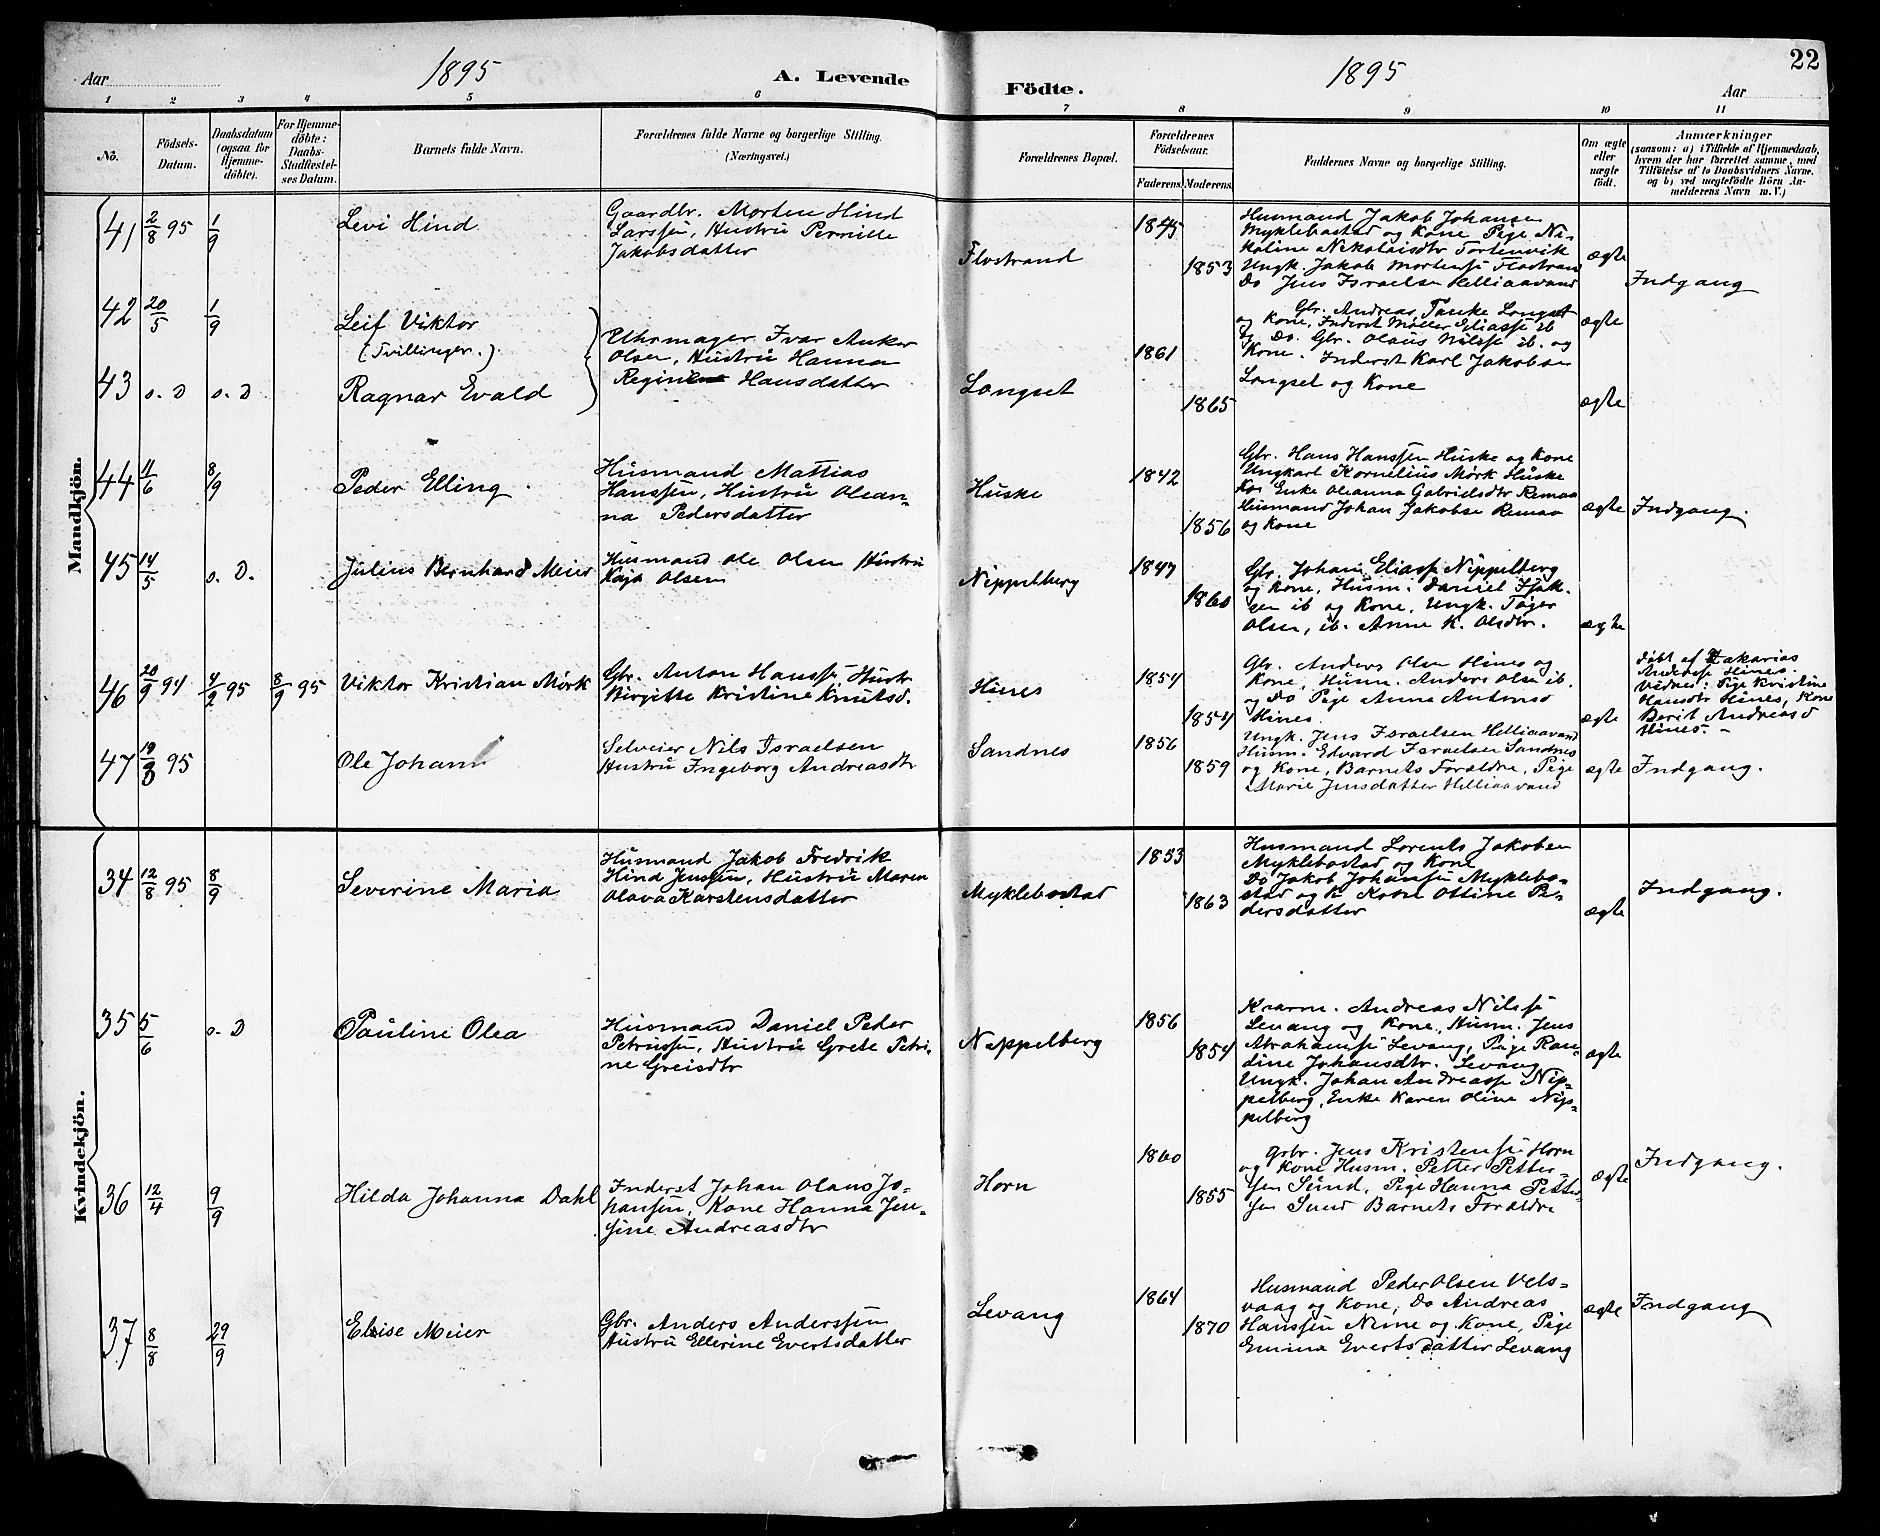 Aar 1895 A. Levende
Födte. 1895 Aar 22
1 2 3 4 5 6 7 8 9 10 11
No.
Födsels-
Datum.
Daabsdatum
(ogsaa för
Hjemme-
döbte).
For Hjemme-
döbte:
Daabs-
Stadfæstel-
ses Datum.
Barnets fulde Navn.
Forældrenes fulde Navne og borgerlige Stilling.
(Næringsvei.)
Forældrenes Bopæl.
Forældrenes
Födselsaar.
Faderens. Moderens.
Faddernes Navne og borgerlige Stilling.
Om ægte
eller
uægte
födt.
Anmærkninger
(saasom: a) i Tilfælde af Hjemmedaab,
hvem der har forrettet samme, med
Tilföielse af to Daabsvidners Navne,
og b) ved uægtefödte Börn An-
melderens Navn m. V.)
Mandkjön.
41 2/8 95 1/9 Levi Hind
Gaardbr. Morten Hind
Larssen, Hustru Pernille
Jakobsdatter
Flostrand 1845 1853
Husmand Jakob Johansen
Myklebostad og Kone Pige Ni-
koline Nikolaisdtr Tortenvik
Ungk. Jakob Mortense Flostran
Do Jens Israelsen Helliaavand
ægte Indgang
42 20/5 1/9 Leif Viktor
(Tvillinger.)
43 o. D o. D Ragnar Evald
Uhrmager Ivar Anker
Olsen, Hustru Hanna
Regine Hansdatter
Langset 1861 1865
Gbr. Andreas Tanke Langset
og Kone, Inderst Møller Eliasse ib
og Do. Gbr. Olaus Nilsse ib. og
Kone. Inderst Karl Jakobsen
Langset og Kone
ægte
ægte
44 11/6 8/9 Peder Elling
Husmand Mattias
Hanssen, Hustru Olean-
na Pedersdatter
Huske 1842 1856
Gbr. Hans Hanssen Huske og Kone
Ungkarl Kornelius Mørk Huske
Enke Oleanna Gabrielsdtr Remaa
Husmand Johan Jakobse Remaa
og Kone
ægte Indgang.
45 14/5 o. D. Julius Bernhard Meier
Husmand Ole Olsen Hustru
Kaja Olsen
Nippelberg 1847 1860
Gbr. Johan Eliasse Nippelberg
og Kone, Husm. Daniel Isak-
sen ib og Kone, Ungk. Tøger
Olsen, ib. Anne K. Olsdtr.
ægte
46 20/9 94 4/2 95 8/9 95 Viktor Kristian Mørk
Gbr. Anton Hansse, Hustr
Birgitte Kristine Knutsd.
Hines 1854 1854
Gbr. Anders Olsen Hines og
Kone, Husm. Anders Olse ib.
og Do Pige Anna Antonsd
Hines.
ægte
døbt af Zakarias
Anderse Hines.
Vidner: Pige Kristine
Hansdtr Hines, Kone
Berit Andreasd
Hines. -
47 19/8 95 Ole Johan
Selveier Nils Israelsen
Hustru Ingeborg Andreasdtr
Sandnes 1856 1859
Ungk. Jens Israelsen Helliaavand
Husm. Edvard Israelsen Sandnes
og Kone, Barnets Forældre, Pige
Marie Jensdatter Helliaavand
ægte Indgang.
Kvindekjön.
34 12/8 95 8/9 Severine Maria
Husmand Jakob Fredrik
Hind Jenssen, Hustru Maren
Olava Karstensdatter
Myklebostad 1853 1863
Husmand Lorents Jakobsen
Myklebostad og Kone
Do Jakob Johanse Myklebo-
stad og Kone Ottine Pe-
dersdatter
ægte Indgang.
35 5/6 o. D Pauline Olea
Husmand Daniel Peder
Petrussen, Hustru Grete Petri-
ne Greisdtr
Nippelberg 1856 1854
Kvarm. Andreas Nilsse
Levang og Kone, Husm. Jens
Abrahamse Levang, Pige Ran-
dine Johansdtr. Levang
Ungk. Johan Andreasse Nip-
pelberg, Enke Karen Oline Nip-
pelberg
ægte
36 12/4 9/9 Hilda Johanna Dahl
Inderst Johan Olaus Jo-
hansen, Kone Hanna Jen-
sine Andreasdtr
Horn 1860 1855
Gbr. Jens Kristense Horn
og Kone Husm. Petter Petter-
sen Sund, Pige Hanna Petter-
sen Sund Barnets Forældre
ægte Indgang.
37 8/8 29/9 Elise Meier
Gbr. Anders Anderssen
Hustru Ellerine Evertsdatter
Levang 1864 1870
Husmand Peder Olsen Vels-
vaag og Kone, Do Andreas
Hanssen Neme og Kone, Pige
Emina Evertsdatter Levang
ægte Indgang